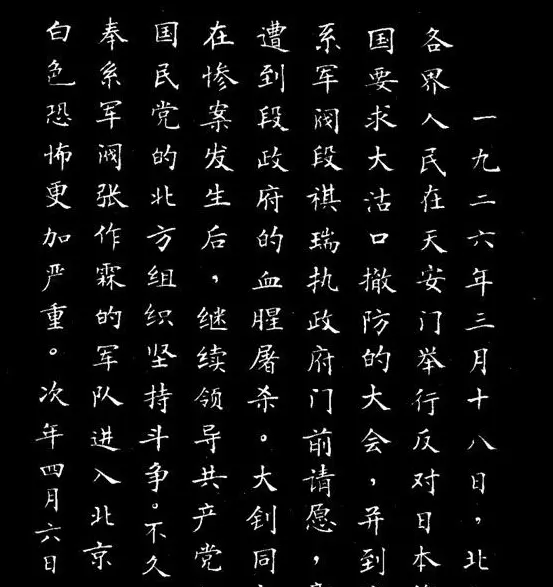 一九二六年三月十八日，北
各界人民在天安门举行反对日本
国要求大沽口撤防的大会，并到
系军阀段祺瑞执政府门前请愿，
遭到段政府的血腥屠杀。大钊同
在惨案发生后，继续领导共产党
国民党的北方组织坚持斗争。不久
奉系军阀张作霖的军队进入北京
白色恐怖更加严重。次年四月六日